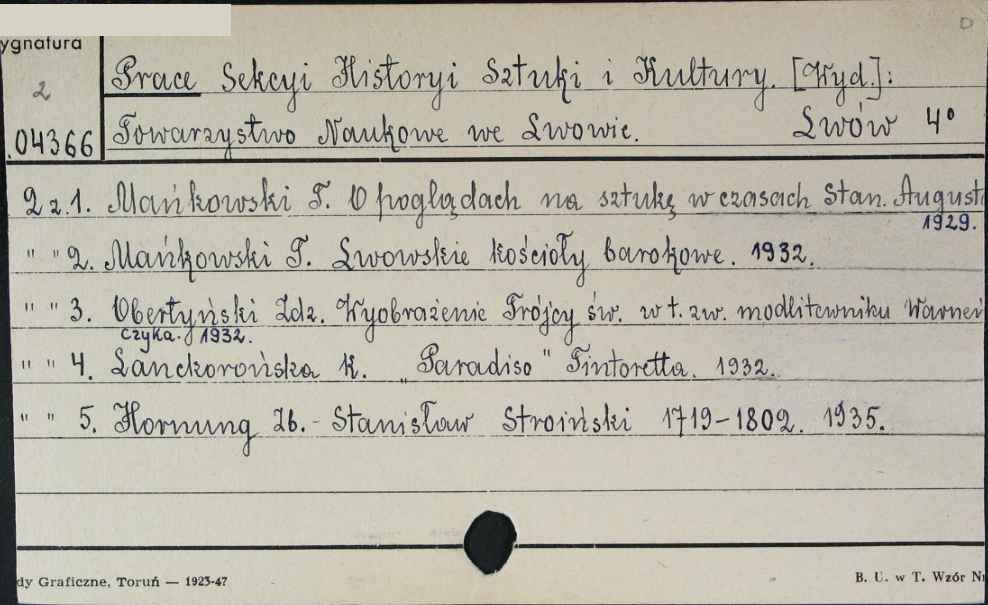 ygnatura
D
2
.04366
Prace Sekcyi Historyi Sztuki i Kultury. [Wyd.]:
Towarzystwo Naukowe we Lwowie. Lwów 4°
2 z. 1. Mańkowski T. O poglądach na sztukę w czasach Stan. August
1929.
" " 2. Mańkowski T. Lwowskie kościoły barokowe. 1932.
" " 3. Obertyński Zdz. Wyobrażenie Trójcy św. w t. zw. modlitewniku Warneń
czyka. 1932.
" " 4. Lanckorońska K. „Paradiso" Tintoretta. 1932.
" " 5. Hornung Zb. - Stanisław Stroiński 1719-1802. 1935.
dy Graficzne, Toruń — 1923-47
B. U. w T. Wzór Nr